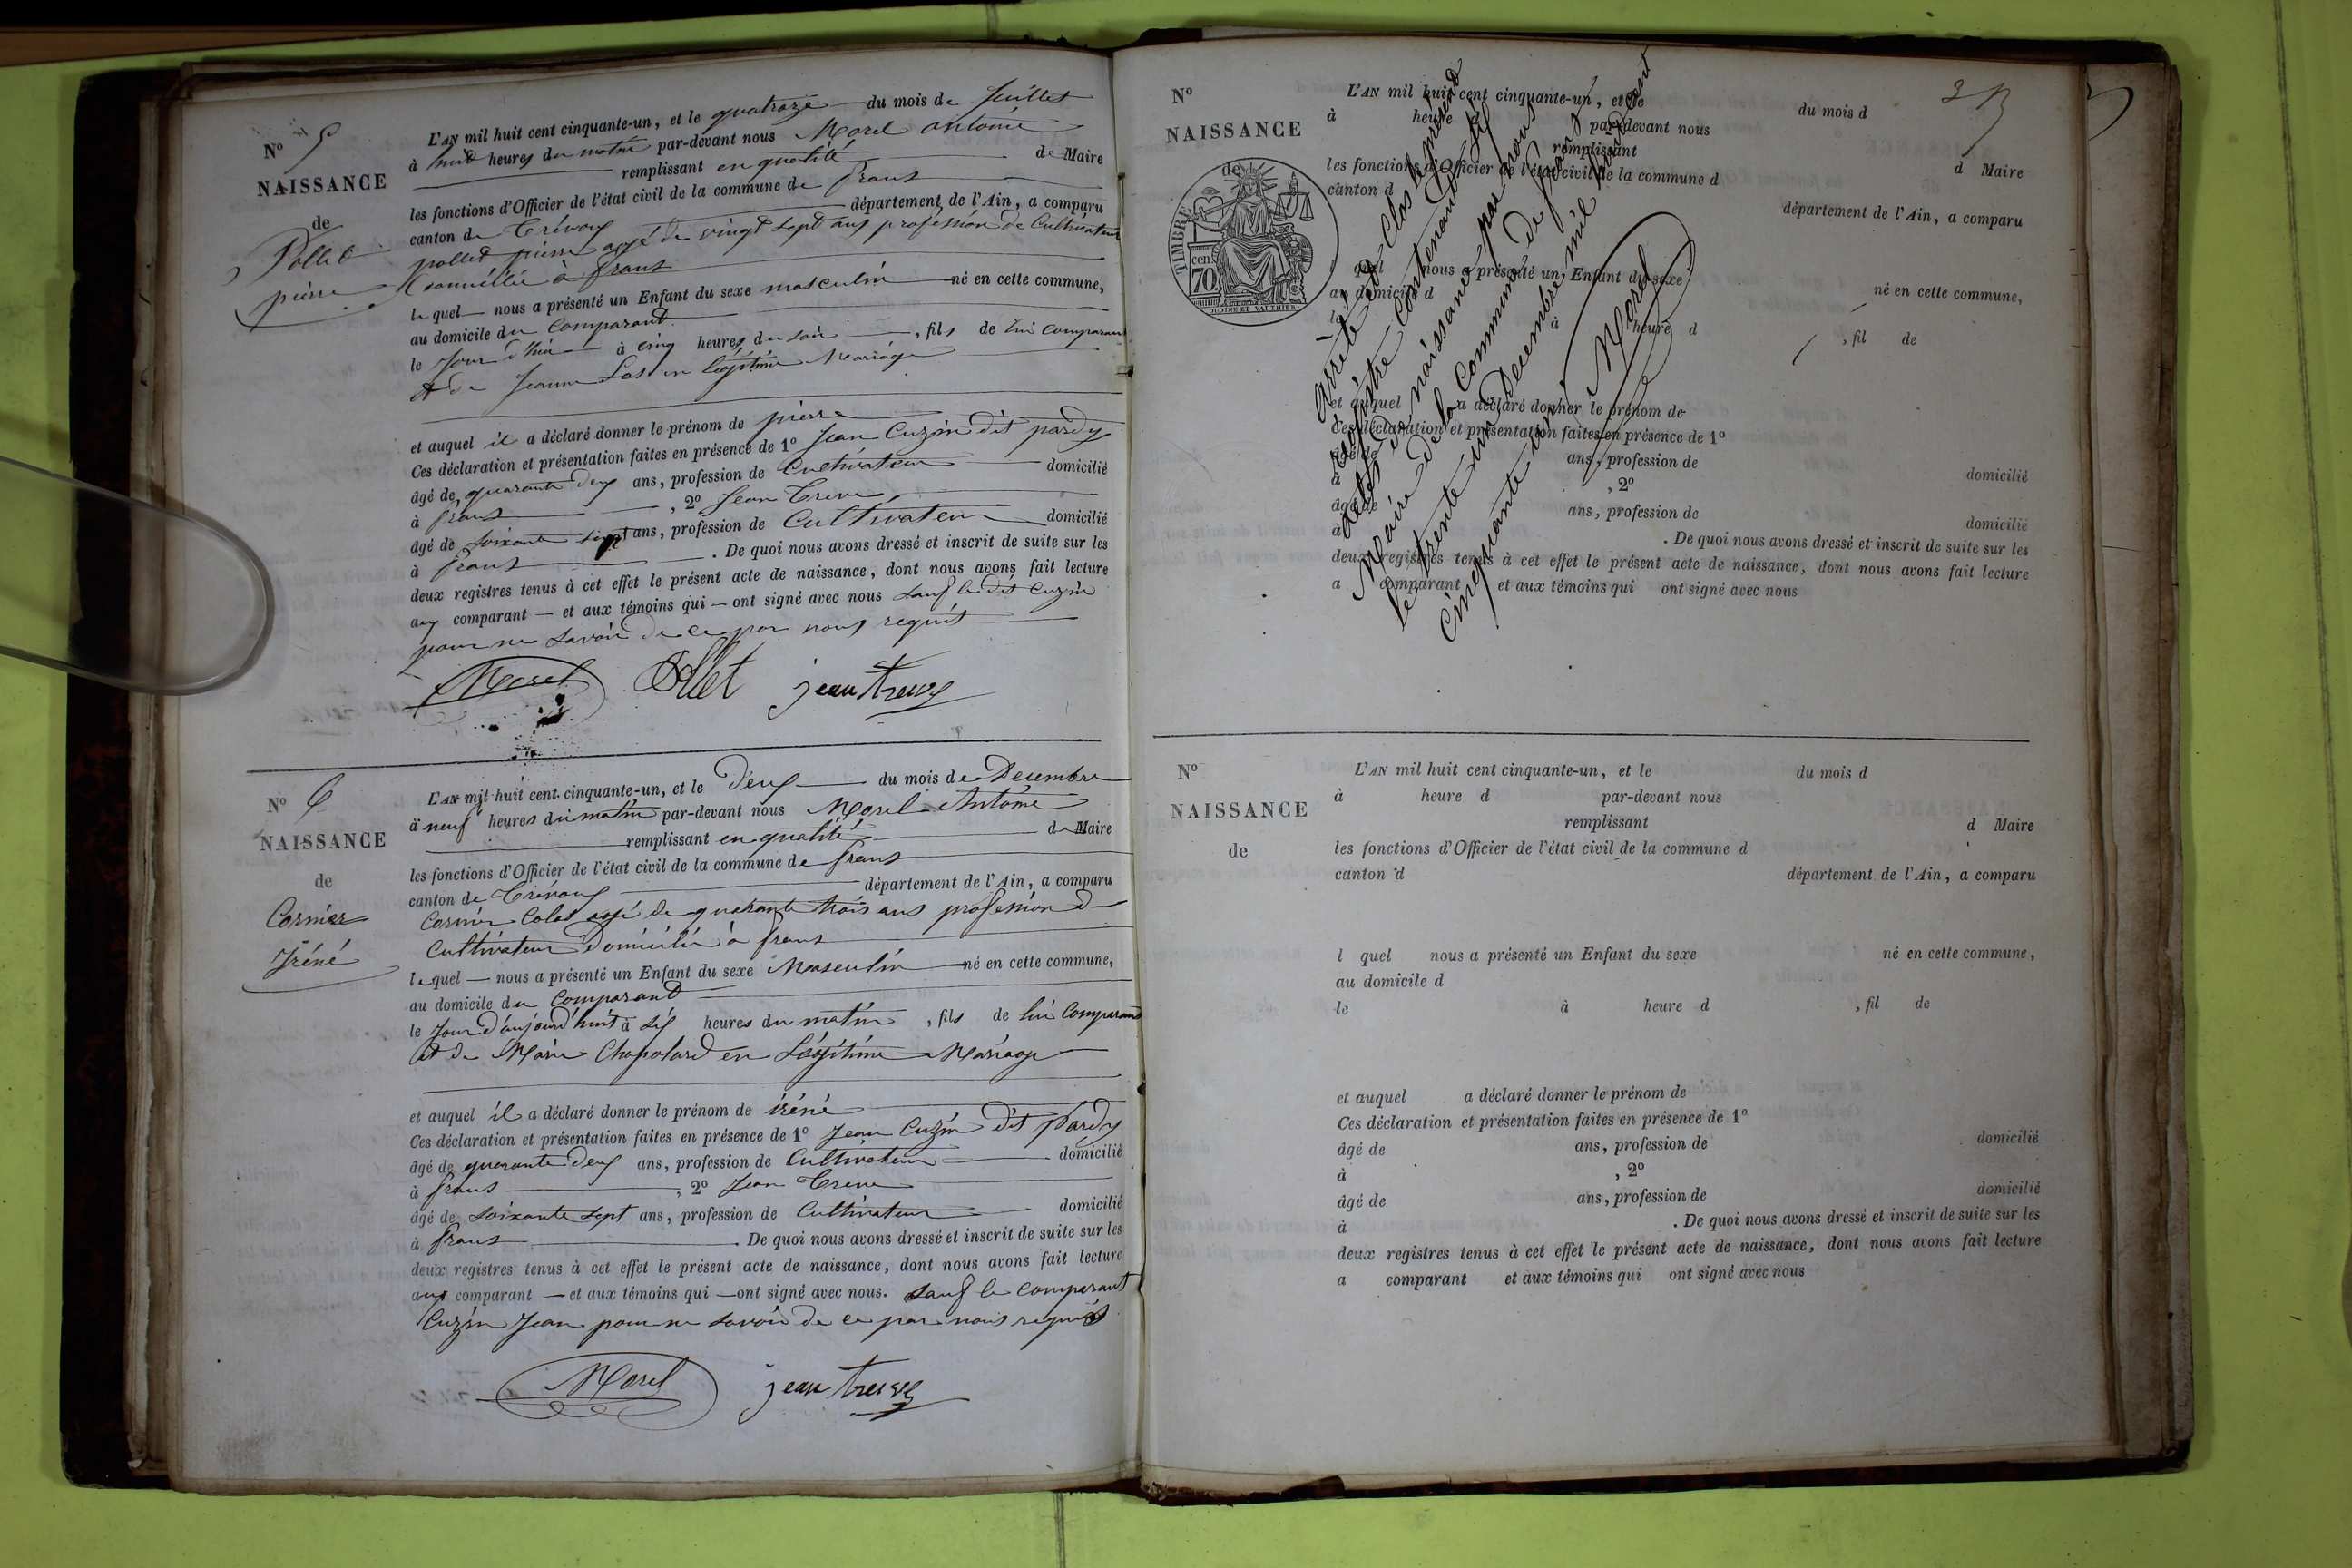 N° 5
NAISSANCE
de
Pollet
pierre
L'AN mil huit cent cinquante-un, et le quatorze du mois de Juillet
à huit heures du matin par-devant nous Morel antoine
remplissant en qualité de Maire
les fonctions d'Officier de l'état civil de la commune de frans
canton de Trévoux département de l'Ain, a comparu
pollet pierre agé de vingt sept ans profession de Cultivateur
Domicilié à frans
le quel nous a présenté un Enfant du sexe masculin né en cette commune,
au domicile du Comparant
le Jour d'hier à cinq heures du soir, fils de lui Comparant
et de Jeanne en Légitime Mariage
et auquel il a déclaré donner le prénom de pierre
Ces déclaration et présentation faites en présence de 1° Jean Cuzin dit pardy
âgé de quarante deux ans, profession de Cultivateur domicilié
à frans, 2° Jean Treve
âgé de soixante sept ans, profession de Cultivateur domicilié
à frans. De quoi nous avons dressé et inscrit de suite sur les
deux registres tenus à cet effet le présent acte de naissance, dont nous avons fait lecture
aux comparant et aux témoins qui ont signé avec nous sauf le dit Cuzin
pour ne savoir de ce par nous requis
Morel Pollet jean treve
N° 6
NAISSANCE
de
Cornier
Iréné
L'AN mil huit cent cinquante-un, et le deux du mois de Decembre
à neuf heures du matin par-devant nous Morel Antoine
remplissant en qualité de Maire
les fonctions d'Officier de l'état civil de la commune de frans
canton de Trévoux département de l'Ain, a comparu
Cornier Colas agé de quarante trois ans profession d
Cultivateur Domicilié à frans
le quel nous a présenté un Enfant du sexe Masculin né en cette commune,
au domicile du Comparant
le Jour d'aujourd'huit à six heures du matin, fils de lui Comparant
et de Marie Chapolard en Légitime Mariage
et auquel il a déclaré donner le prénom de iréné
Ces déclaration et présentation faites en présence de 1° Jean Cuzin dit Pardy
âgé de quarante deux ans, profession de Cultivateur domicilié
à frans, 2° Jean Treve
âgé de soixante sept ans, profession de Cultivateur domicilié
à frans. De quoi nous avons dressé et inscrit de suite sur les
deux registres tenus à cet effet le présent acte de naissance, dont nous avons fait lecture
aux comparant et aux témoins qui ont signé avec nous. sauf le comparant
Cuzin Jean pour ne savoir de ce par nous requis
Morel jean treve
N°
NAISSANCE
de
TIMBRE
cen
70
OUDINÉ ET VAUTHIER
L'AN mil huit cent cinquante-un, et le du mois d
à heure d par-devant nous
remplissant d Maire
les fonctions d'Officier de l'état civil de la commune d
canton d département de l'Ain, a comparu
l quel nous a présenté un Enfant du sexe né en cette commune,
au domicile d
le à heure d, fil de
et auquel a déclaré donner le prénom de
Ces déclaration et présentation faites en présence de 1°
âgé de ans, profession de domicilié
à, 2°
âgé de ans, profession de domicilié
à. De quoi nous avons dressé et inscrit de suite sur les
deux registres tenus à cet effet le présent acte de naissance, dont nous avons fait lecture
a comparant et aux témoins qui ont signé avec nous
Arrêté et Clos le présend
régistre Contenand Six
actes de naissance par nous
Maire de la Commune de frans
le trente un Decembre mil huit cent
Cinquante un
Morel
N°
NAISSANCE
de
L'AN mil huit cent cinquante-un, et le du mois d
à heure d par-devant nous
remplissant d Maire
les fonctions d'Officier de l'état civil de la commune d
canton d département de l'Ain, a comparu
l quel nous a présenté un Enfant du sexe né en cette commune,
au domicile d
le à heure d, fil de
et auquel a déclaré donner le prénom de
Ces déclaration et présentation faites en présence de 1°
âgé de ans, profession de domicilié
à, 2°
âgé de ans, profession de domicilié
à. De quoi nous avons dressé et inscrit de suite sur les
deux registres tenus à cet effet le présent acte de naissance, dont nous avons fait lecture
a comparant et aux témoins qui ont signé avec nous